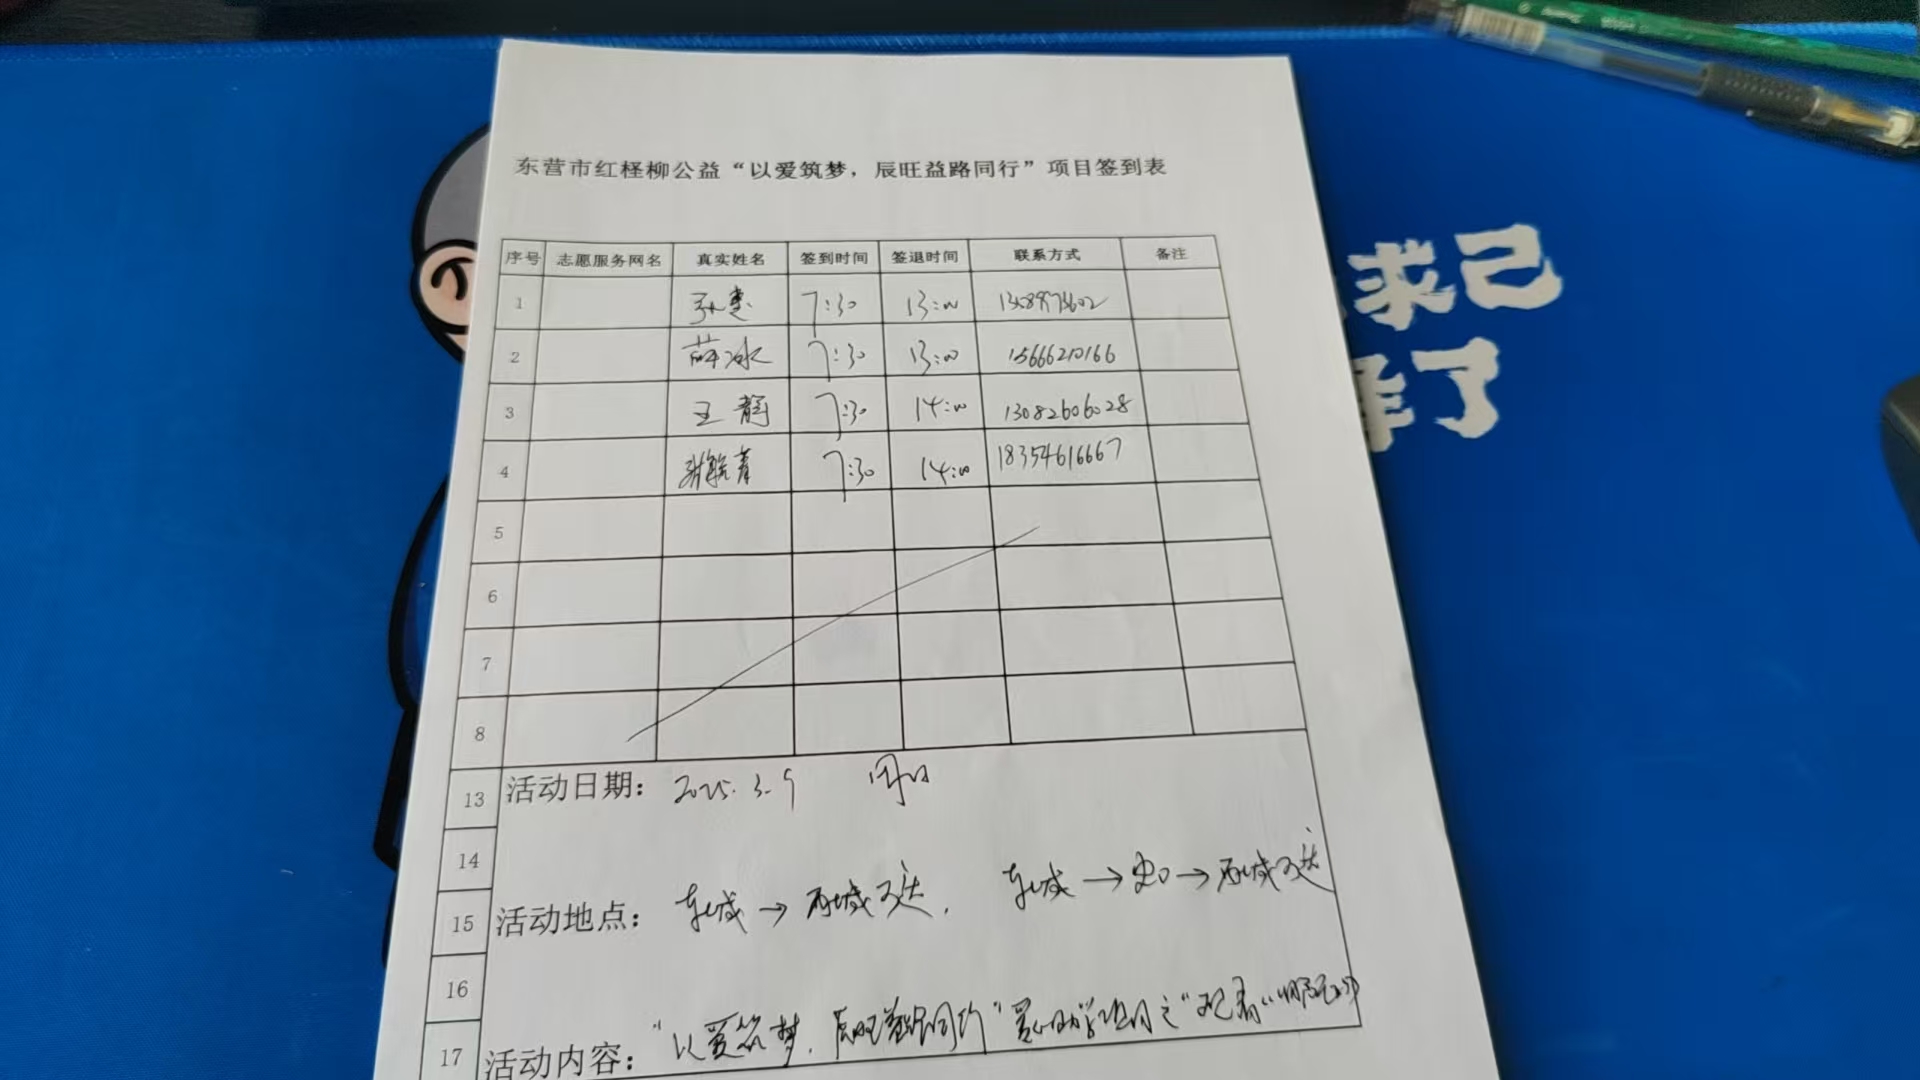 东营市红柽柳公益“以爱筑梦，辰旺益路同行”项目签到表
序号 志愿服务网名 真实姓名 签到时间 签退时间 联系方式 备注
1 7:30 13:00
2 薛冰 7:30 13:00 15666210166
3 王静 7:30 14:00 13082606028
4 7:30 14:00 18354616667
5
6
7
8
13 活动日期： 2025.3.9 周日
14
15 活动地点： 东城→西城, 东城→→西城
16
17 活动内容： “以爱筑梦，辰旺益路同行”爱心助学项目之“
求己
了